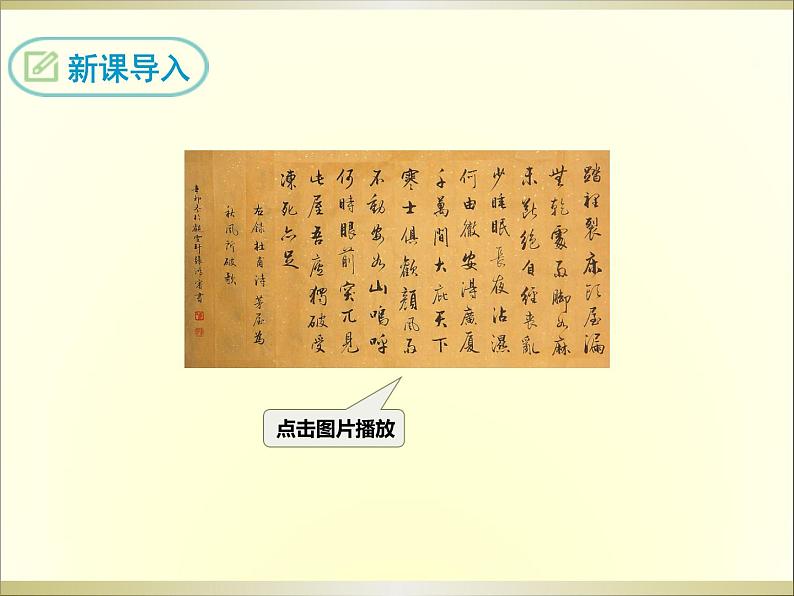 新课导入
踏裡裂床頭屋漏
無乾處雨腳如麻
未斷絕自經喪亂
少睡眠長夜沾濕
何由徹安得廣厦
千萬間大庇天下
寒士俱歡顏風雨
不動安如山嗚呼
何時眼前突兀見
此屋吾廬獨破受
凍死亦足
右錄杜甫詩茅屋為
秋風所破歌
点击图片播放